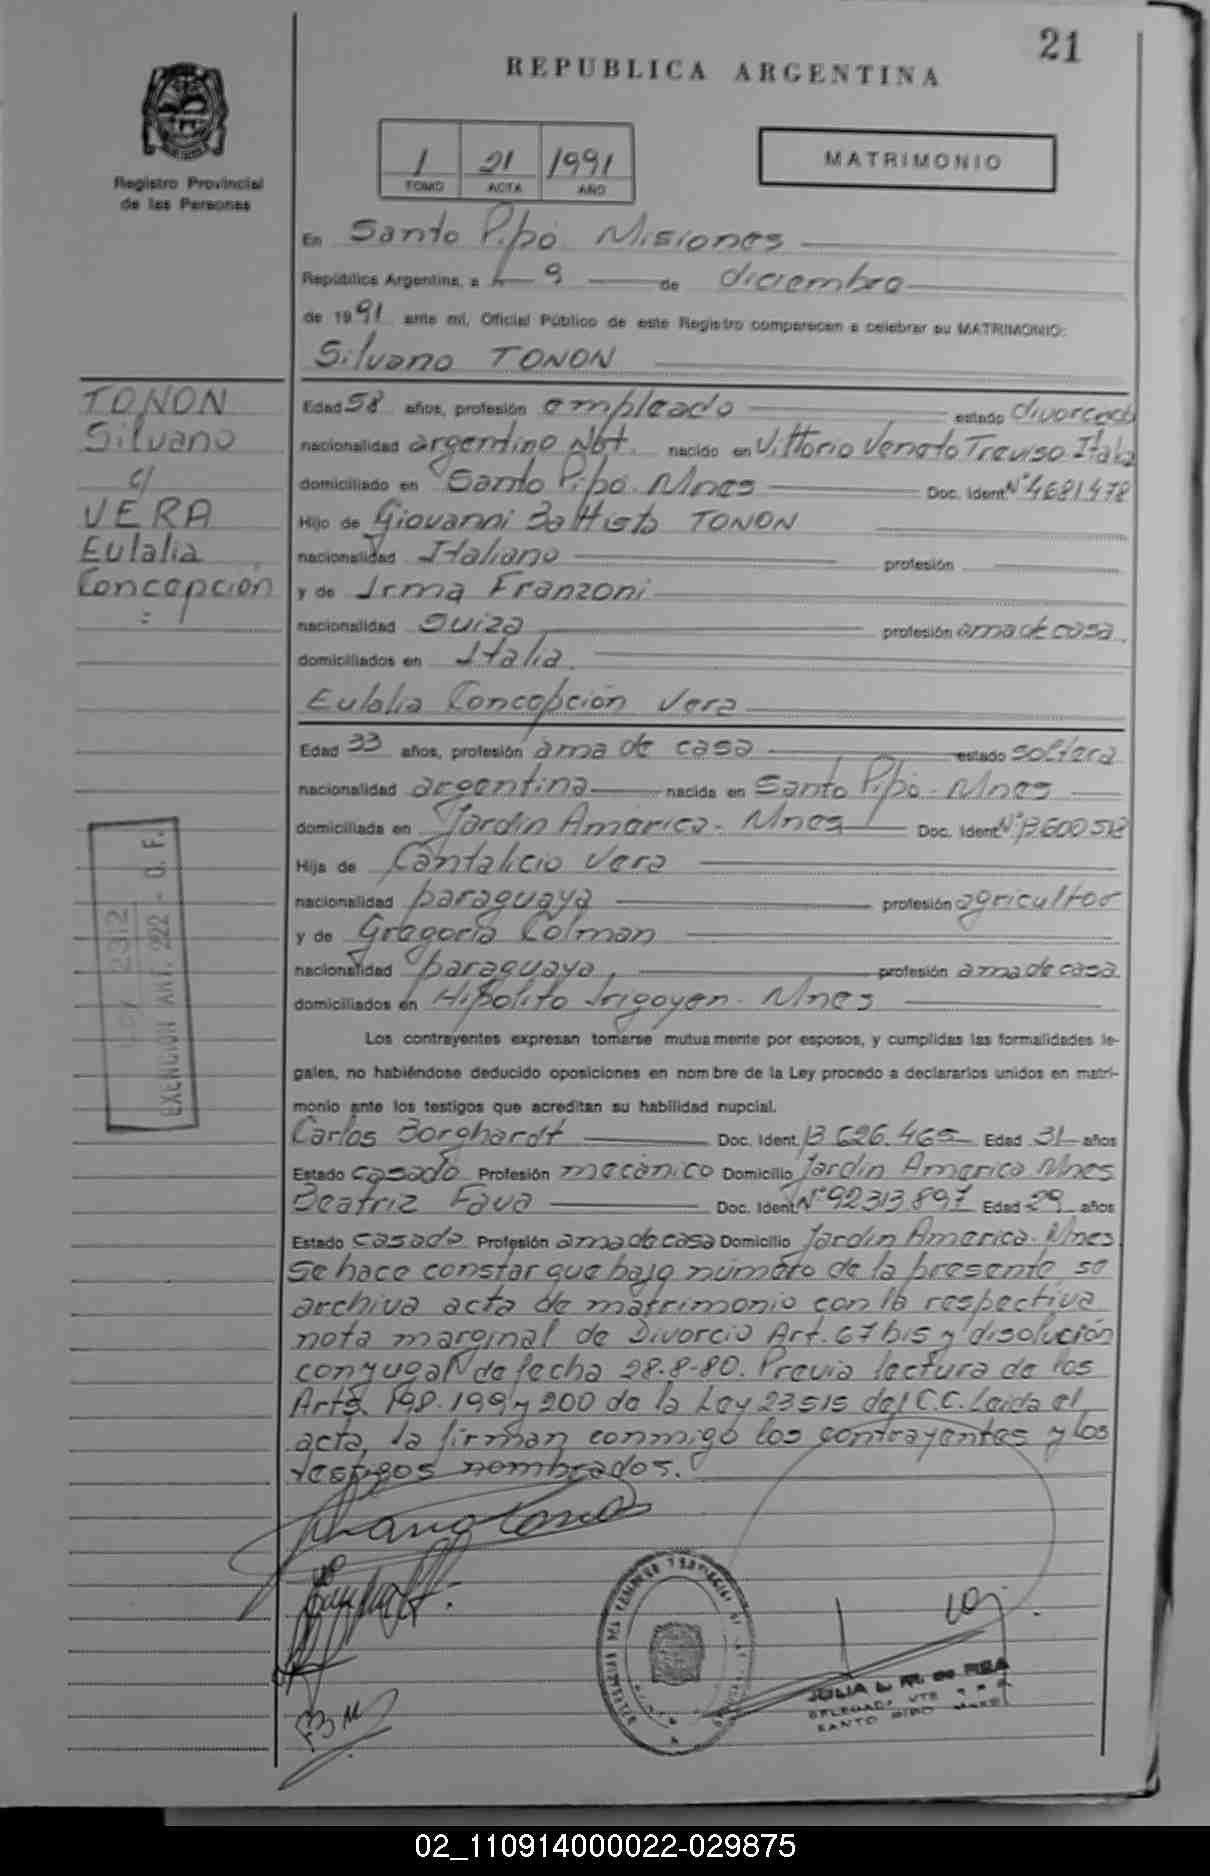 21
REPUBLICA ARGENTINA
Registro Provincial
de las Personas
1 21 1991
TOMO ACTA AÑO
MATRIMONIO
En Santo Pipó Misiones
República Argentina, a 9 de diciembre
de 1991 ante mí, Oficial Público de este Registro comparecen a celebrar su MATRIMONIO:
Silvano TONON
TONON
Silvano
c/
VERA
Eulalia
Concepción
Edad 58 años, profesión empleado estado divorciado
nacionalidad argentino Nat. nacido en Vittorio Veneto Treviso Italia
domiciliado en Santo Pipó. Mnes Doc. Ident. Nº 4681478
Hijo de Giovanni Battista TONON
nacionalidad Italiano profesión
y de Irma Franzoni
nacionalidad suiza profesión ama de casa
domiciliados en Italia.
Eulalia Concepción Vera
Edad 33 años, profesión ama de casa estado soltera
nacionalidad argentina nacida en Santo Pipó. Mnes
domiciliada en Jardín América. Mnes Doc. Ident. Nº
Hija de Cantalicio Vera
nacionalidad paraguaya profesión agricultor
y de Gregoria Colman
nacionalidad paraguaya, profesión ama de casa
domiciliados en Hipólito Irigoyen. Mnes
Los contrayentes expresan tomarse mutuamente por esposos, y cumplidas las formalidades le-
gales, no habiéndose deducido oposiciones en nombre de la Ley procedo a declararlos unidos en matri-
monio ante los testigos que acreditan su habilidad nupcial.
Carlos Borghardt Doc. Ident. 13.626.465 Edad 31 años
Estado casado Profesión mecánico Domicilio Jardín América Mnes
Beatriz Fava Doc. Ident. Nº 92313897 Edad 29 años
Estado casada Profesión ama de casa Domicilio Jardín América. Mnes
Se hace constar que bajo número de la presente se
archiva acta de matrimonio con la respectiva
nota marginal de Divorcio Art. 67 bis y disolución
conyugal de fecha 28-8-80. Previa lectura de los
Arts. 198. 199 y 200 de la Ley 23515 del C.C. Leída el
acta, la firman conmigo los contrayentes y los
testigos nombrados.
LEY 2312
EXENCION ART. 222 - O. F.
JULIA L. M. de REA
SANTO PIPO
02_110914000022-029875